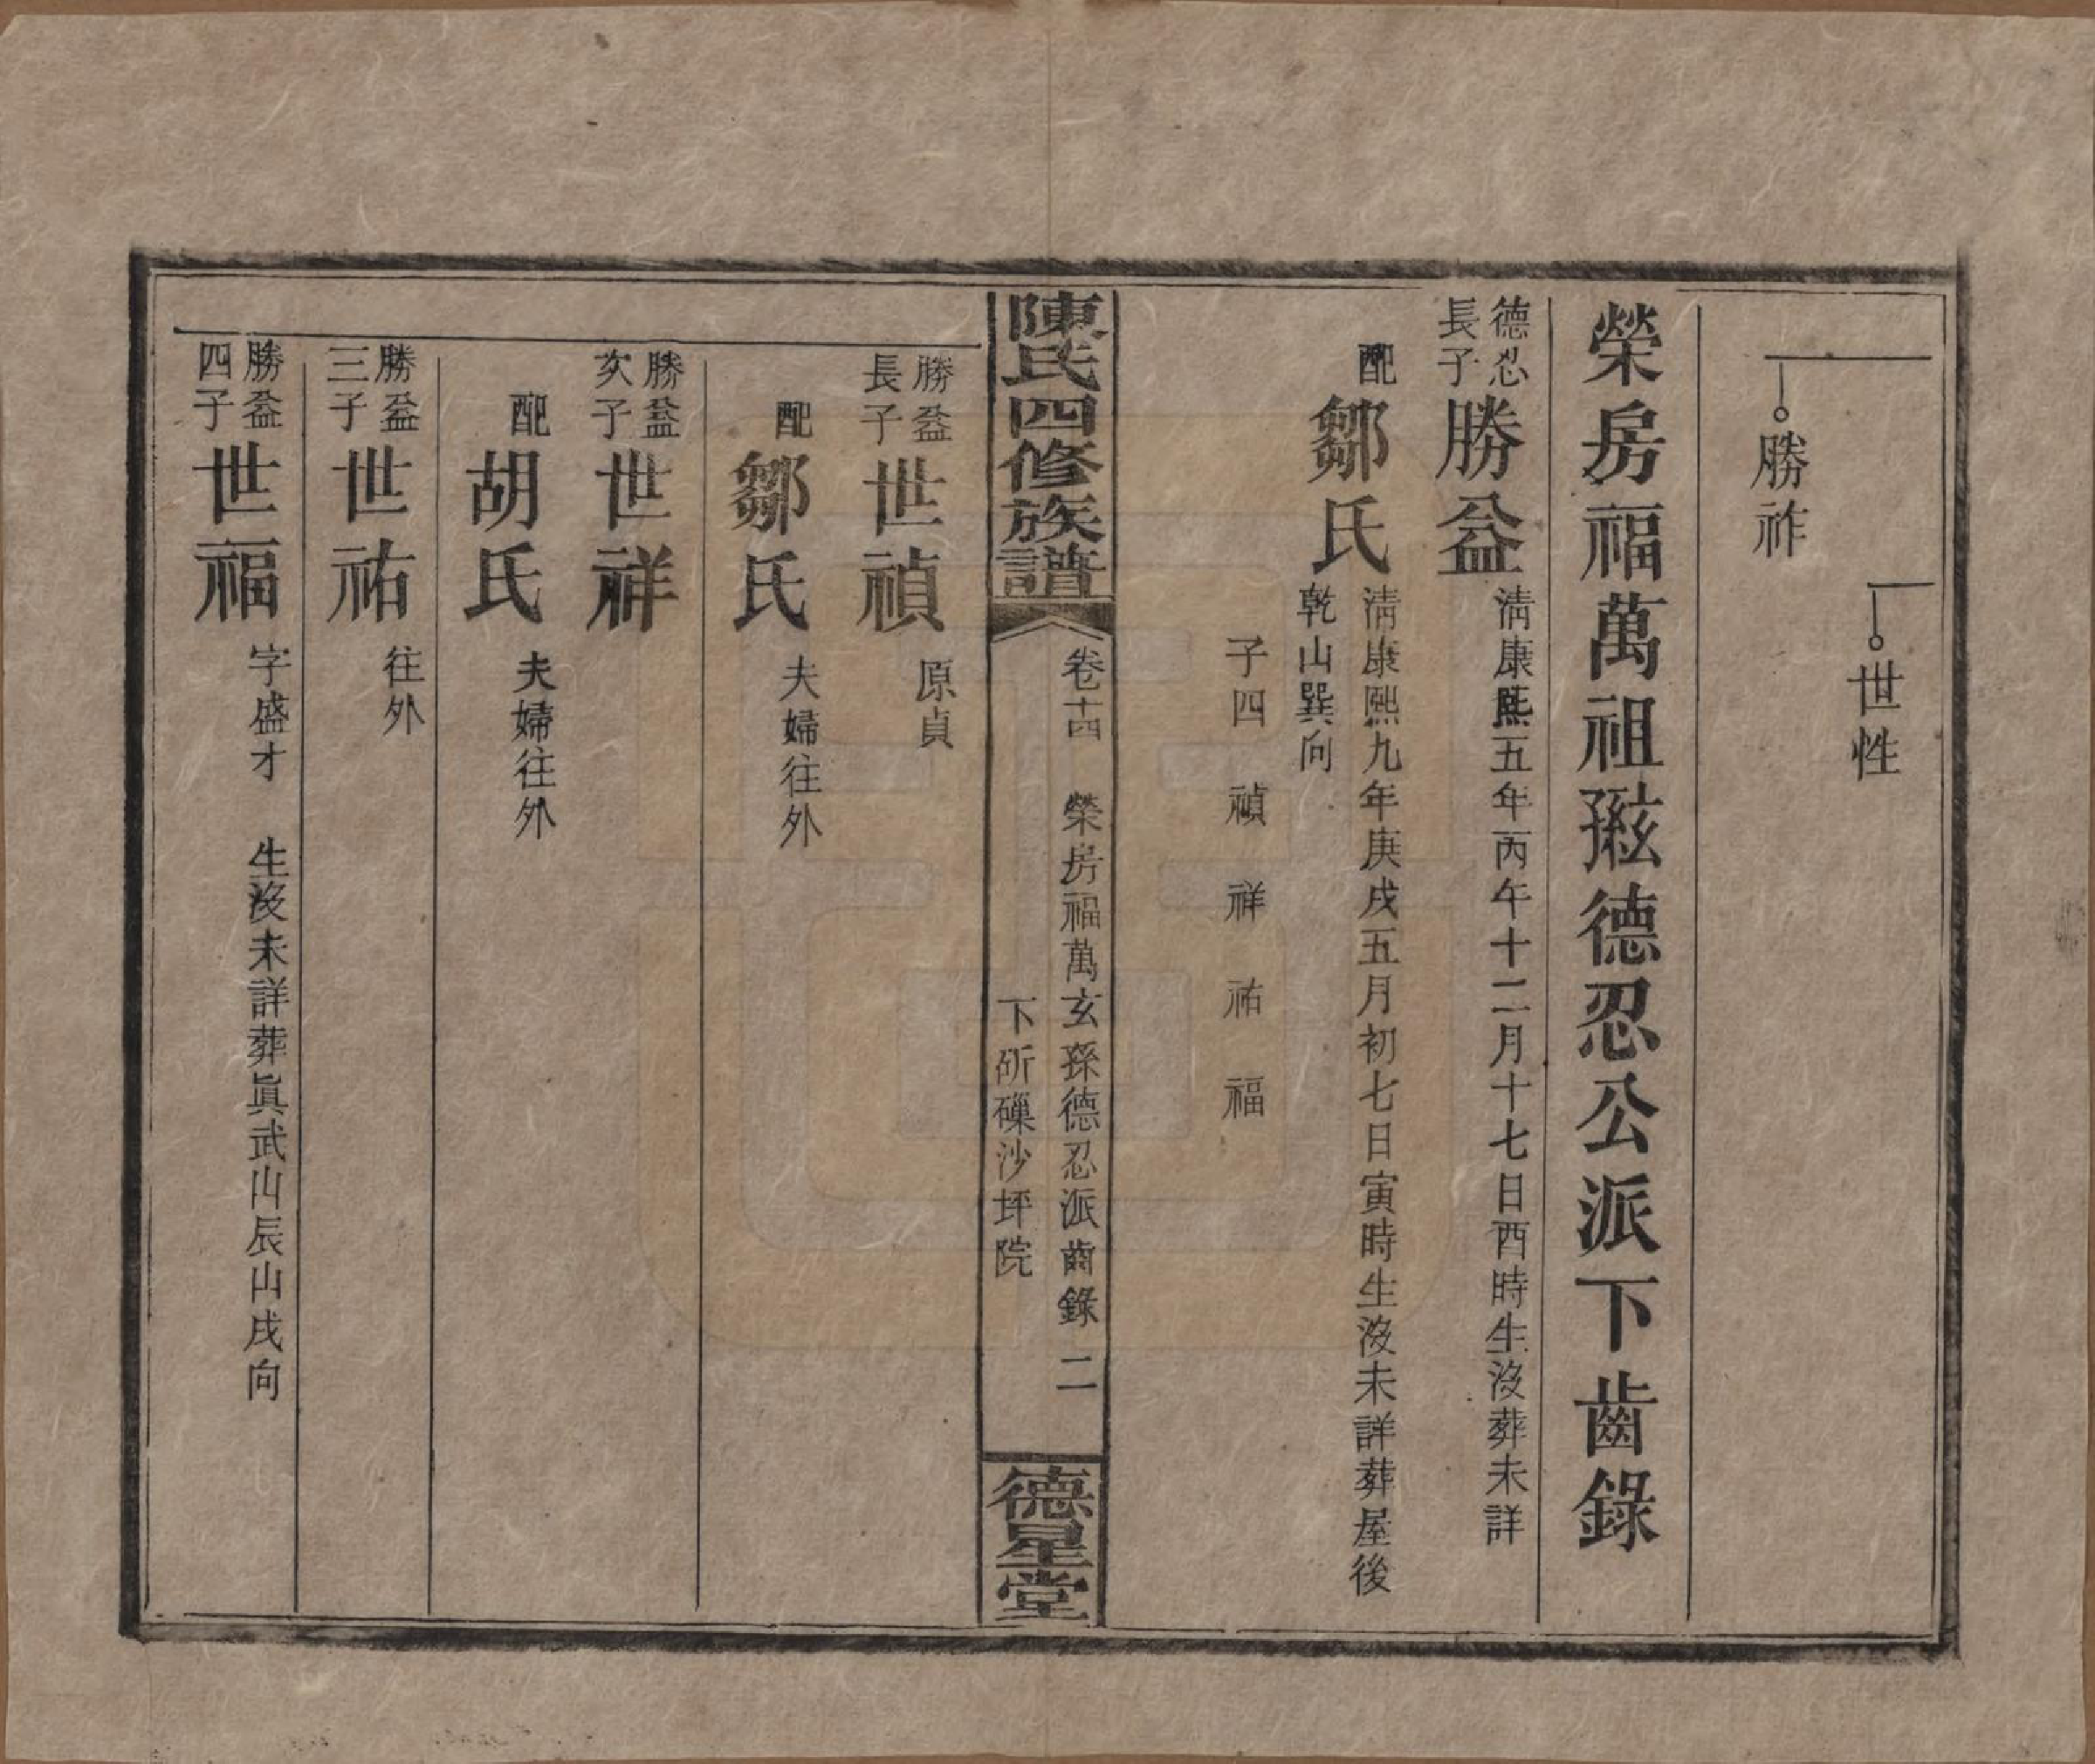 世性
勝祚
榮房福萬祖玄孫德忍公派下齒錄
德忍
長子
勝益
清康熙五年丙午十二月十七日酉時生沒葬未詳
配
鄒氏
清康熙九年庚戌五月初七日寅時生沒未詳葬屋後
乾山巽向
子四 禎 祥 祐 福
陳氏四修族譜
卷十四 榮房福萬玄孫德忍派齒錄 二
下斫磲沙坪院
德星堂
勝益
長子
世禎
原貞
配
鄒氏
夫婦往外
勝益
次子
世祥
配
胡氏
夫婦往外
勝益
三子
世祐
往外
勝益
四子
世福
字盛才 生沒未詳葬眞武山辰山戌向